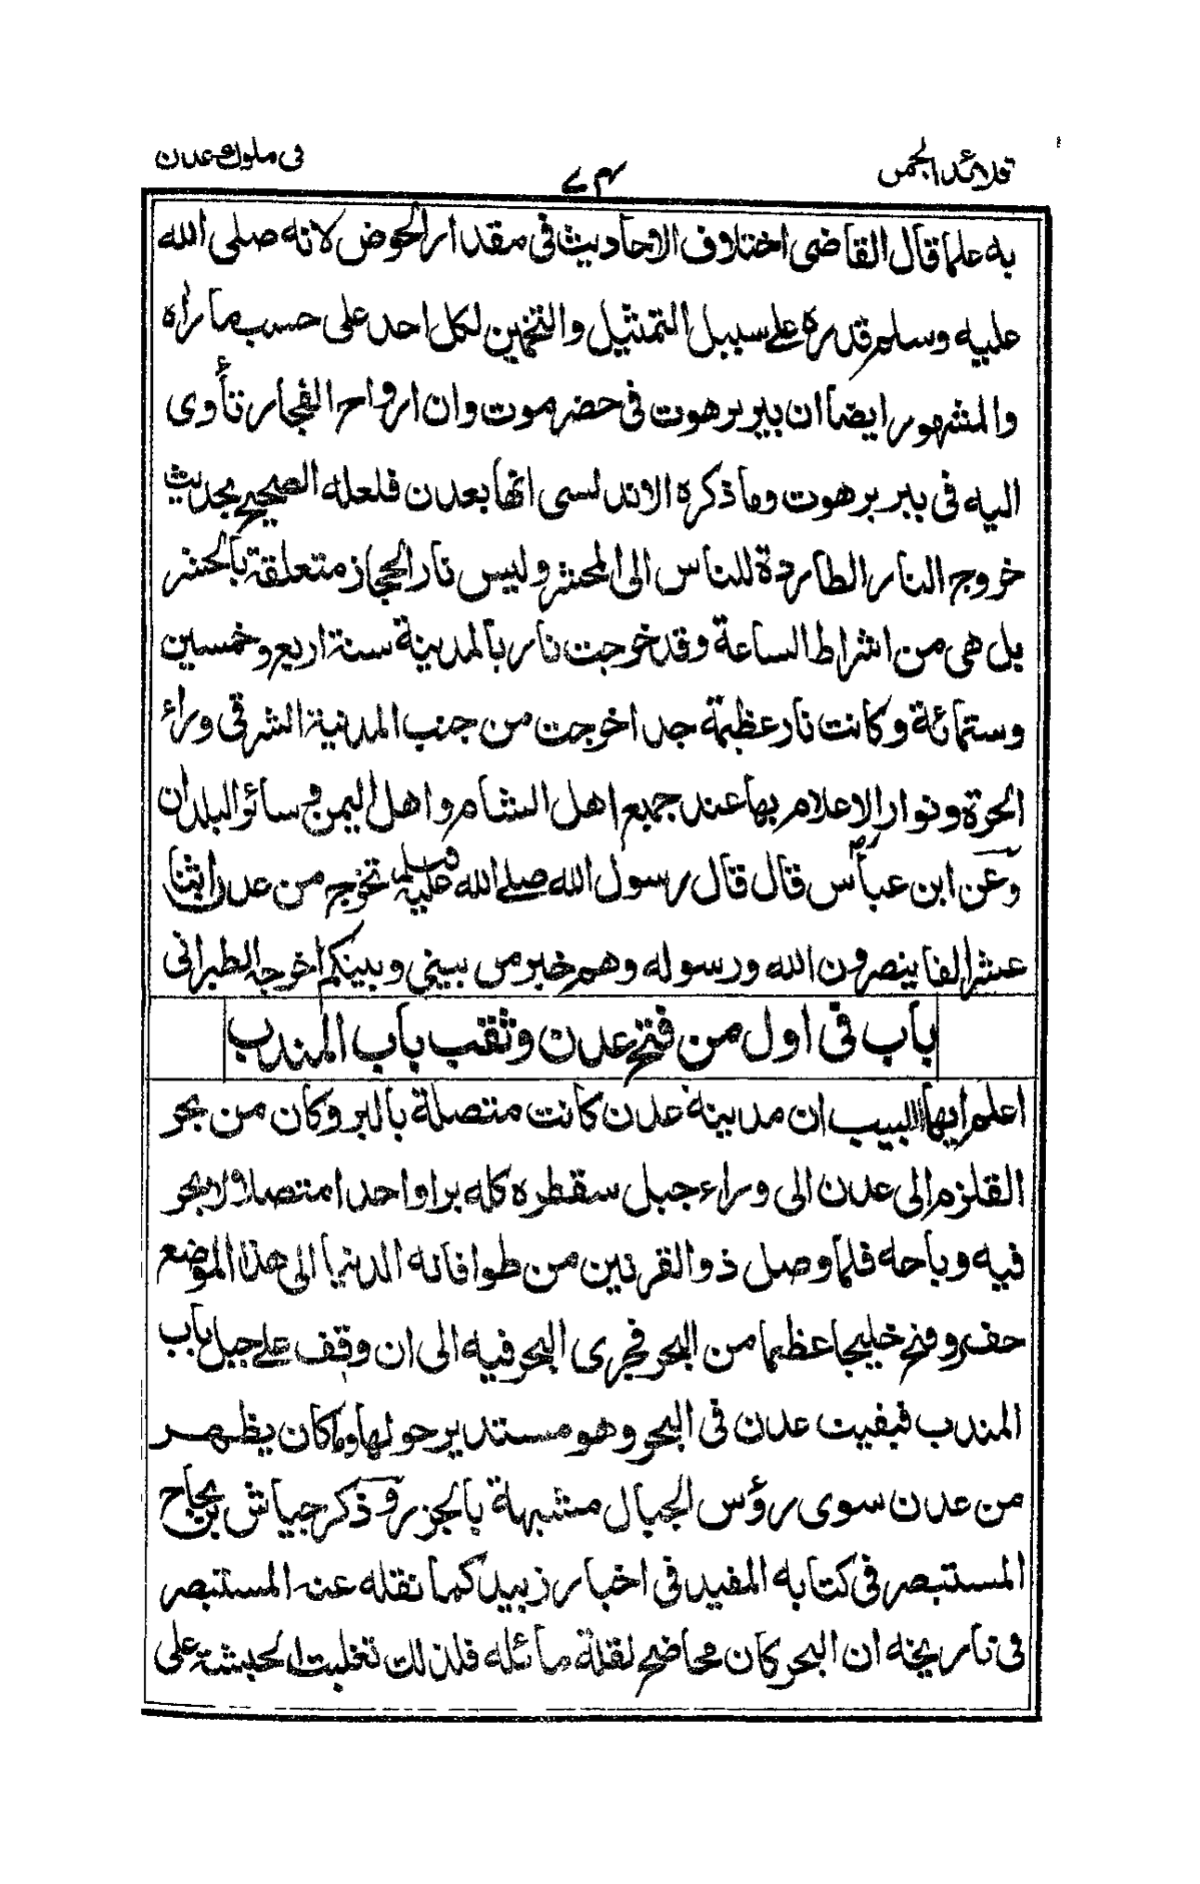 قلائد الجمن
٧٤
في ملوك عدن
به علما قال القاضي اختلاف الاحاديث في مقدار الحوض لانه صلى الله
عليه وسلم قدره على سبيل التمثيل والتخمين لكل احد على حسب ما رآه
والمشهور ايضا ان بير برهوت في حضرموت وان ارواح الفجار تأوى
اليه في بير برهوت وما ذكره الاندلسى انها بعدن فلعله الصحيح بحديث
خروج النار الطاردة للناس الى المحشر وليس نار الحجاز متعلقة بالحشر
بل هي من اشراط الساعة وقد خرجت نار بالمدينة سنة اربع وخمسين
وستمائة وكانت نار عظيمة جدا خرجت من جنب المدينة الشرقى وراء
الحرة وتواتر الاعلام بها عند جميع اهل الشام واهل اليمن وسائر البلدان
وعن ابن عباس قال قال رسول الله صلے الله عليه وسلم تخرج من عدن اثنا
عشر الفا ينصرون الله ورسوله وهم خير من بيني وبينكم اخرجه الطبرانى
باب في اول من فتح عدن وثقب باب المندب
اعلم ايها اللبيب ان مدينة عدن كانت متصلة بالبر وكان من بحر
القلزم الى عدن الى وراء جبل سقطره كله برا واحدا متصلا ولا بحر
فيه وباحه فلما وصل ذو القرنين من طوافانه الدنيا الى هذا الموضع
حفر وفتح خليجا عظيما من البحر فجرى البحر فيه الى ان وقف على جبل باب
المندب فبقيت عدن في البحر وهو مستدير حولها وما كان يظهر
من عدن سوى رؤس الجبال مشبهة بالجزر وذكر جياش بن نجاح
المستبصر في كتابه المفيد في اخبار زبيد كما نقله عنه المستبصر
في تاريخه ان البحر كان محاضح لقلة مائله فلذلك تغلبت الحبشة على